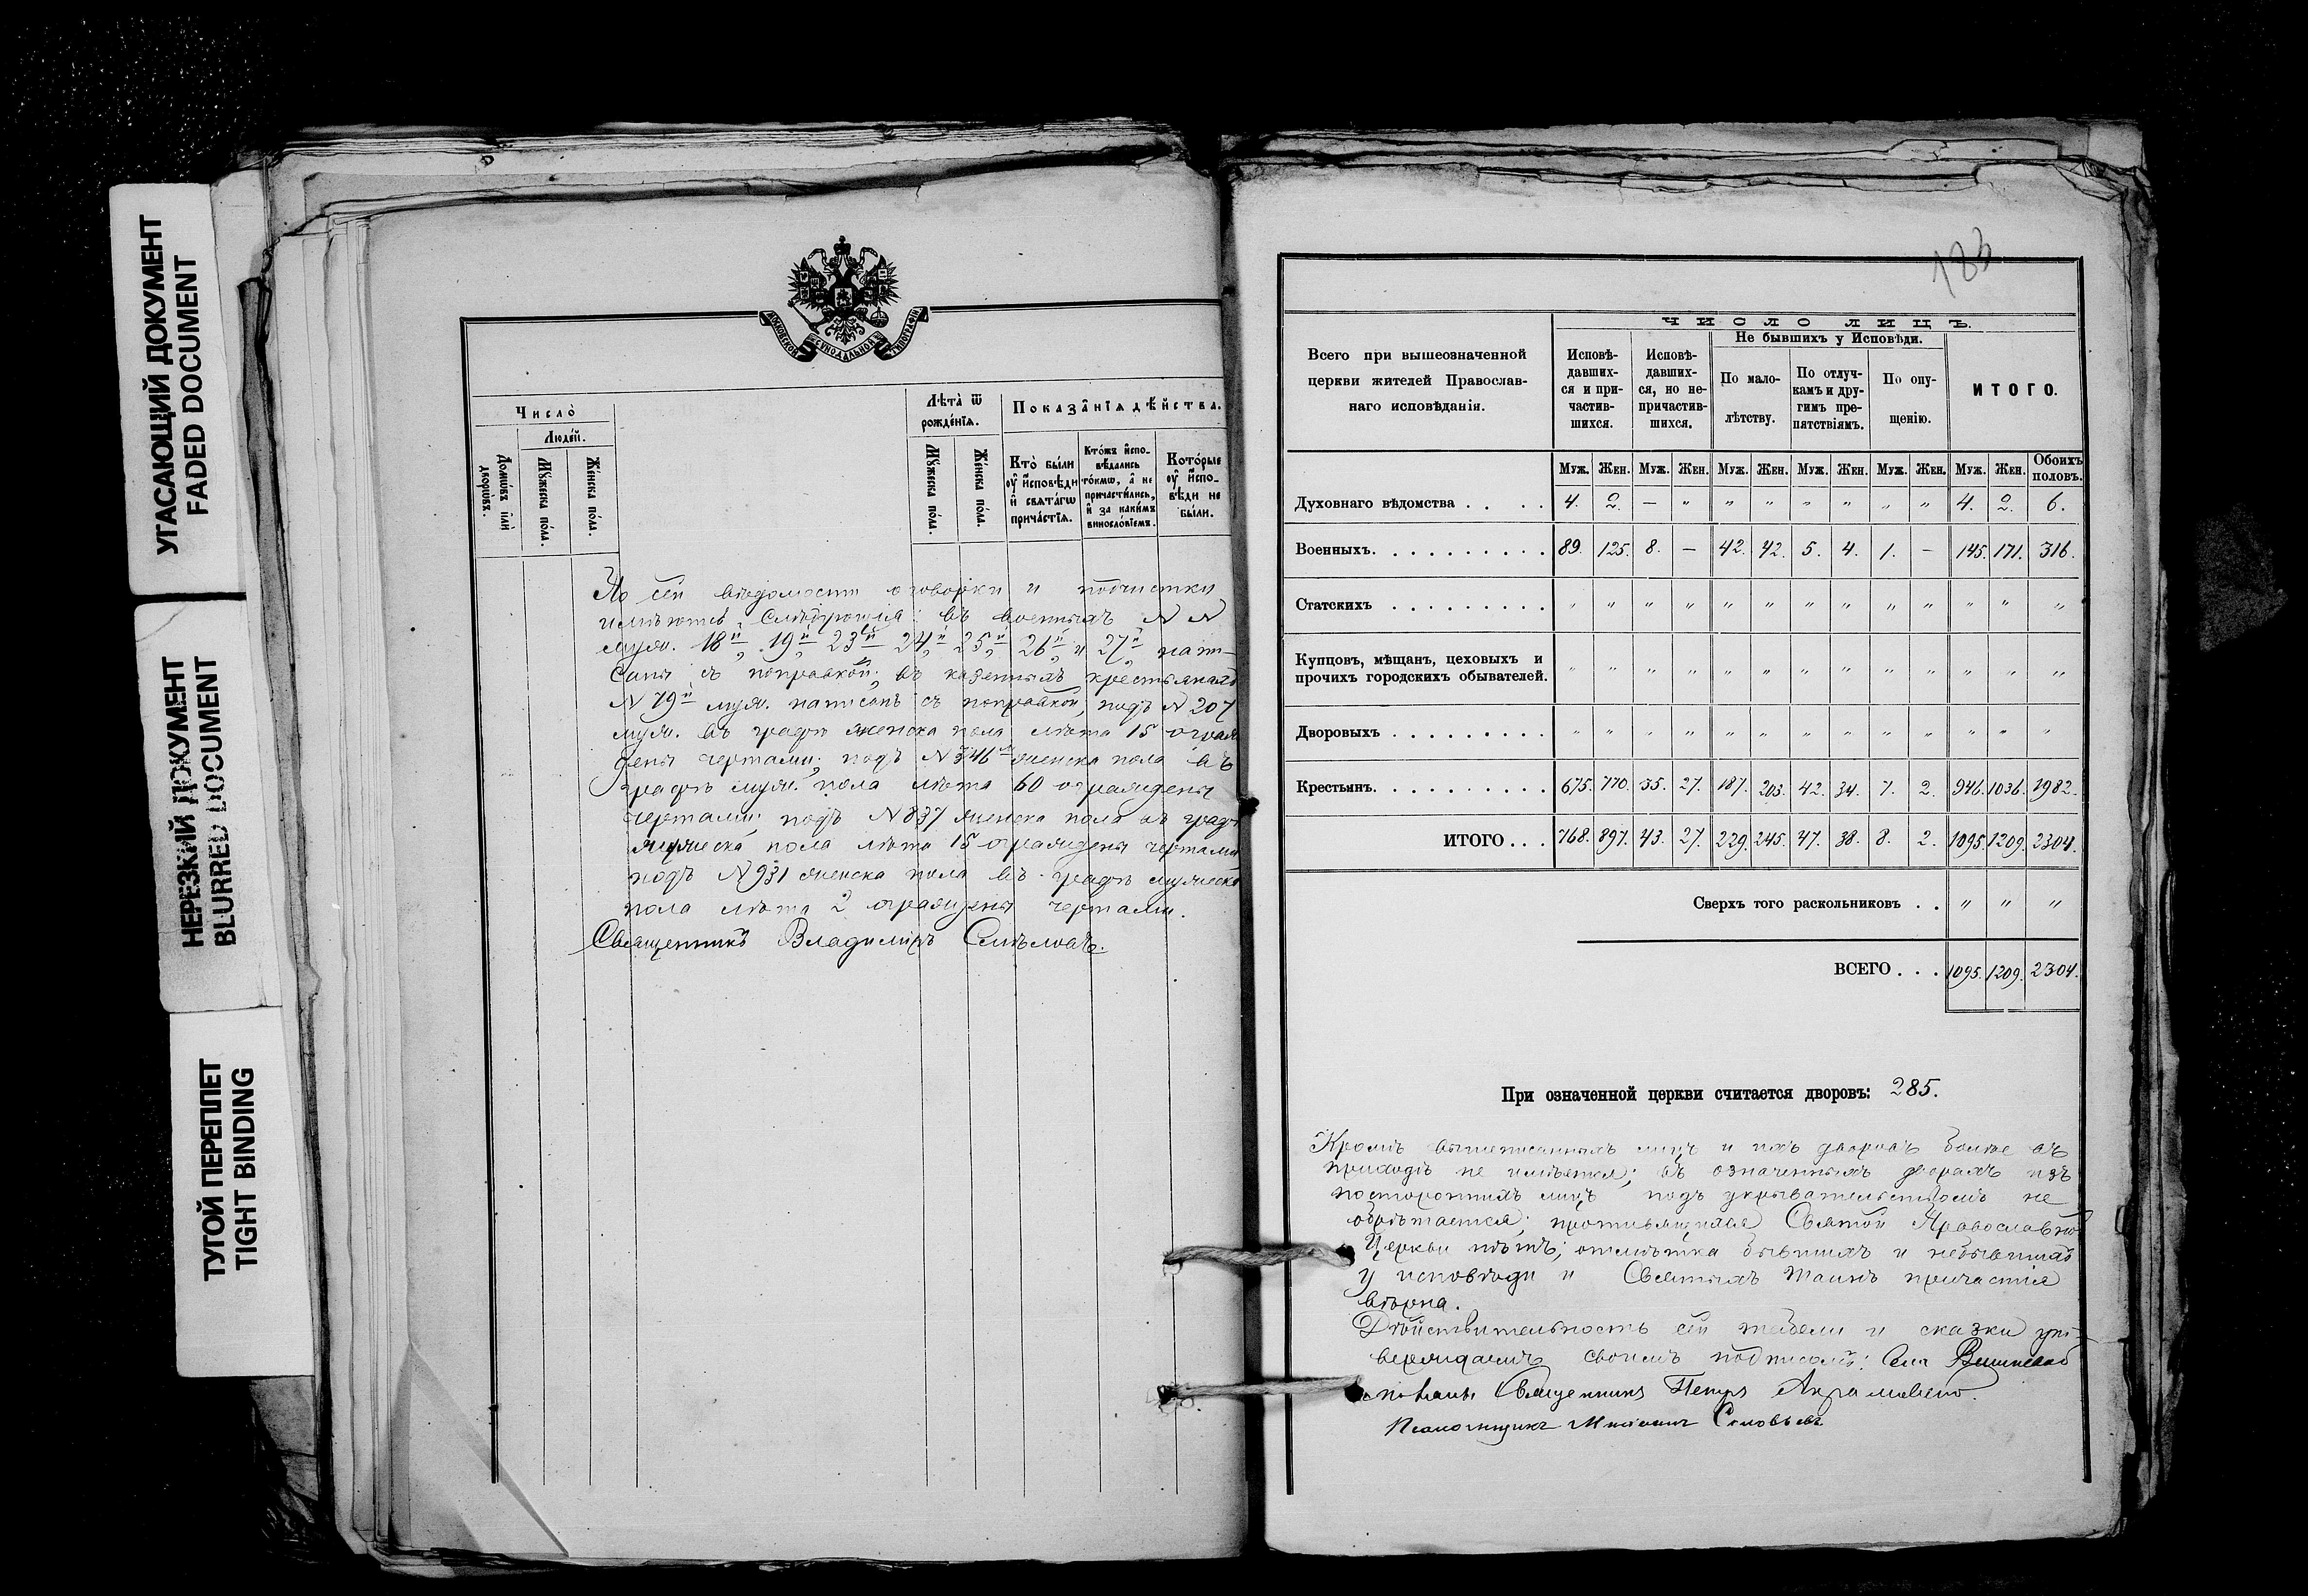 УГАСАЮЩИЙ ДОКУМЕНТ
FADED DOCUMENT
НЕРЕЗКИЙ ДОКУМЕНТ
BLURRED DOCUMENT
ТУГОЙ ПЕРЕПЛЕТ
TIGHT BINDING
МОСКОВСКОЙ СѴНОДАЛЬНОЙ ТИПОГРАФІИ
Число̀
Людей.
Домѡвъ илѝ дворѡвъ.
Мꙋжеска по́ла.
Же́нска по́ла.
Лѣта̀ ѿ рожде́нїѧ.
Мꙋжеска по́ла.
Же́нска по́ла.
Показа̑нїѧ дѣ́йства.
Кто̀ бы́ли ᲂу҆ и҆сповѣди и҆ свѧта́гѡ прича́стїѧ.
Кто́жъ и҆спо-вѣдались то́кмѡ, а҆ не причасти́лись, и҆ за каки́мъ винословїемъ.
Кото́рые ᲂу҆ и҆спо-вѣди не бы́ли.
По сей вѣдомости оговорки и подчистки
имѣются слѣдующія: въ военныхъ N N
муж. 18й, 19й, 23й, 24й, 25й, 26й и 27й напи-
саны съ поправкой; въ казенныхъ крестьянахъ
N 79й муж. написанъ съ поправкой, подъ N 207
муж. въ графѣ женска пола лѣта 15 ограж
дены чертами; подъ N 346м женска пола въ
графѣ муж. пола лѣта 60 ограждены
чертами; подъ N 837 женска пола въ графѣ
мужеска пола лѣта 15 ограждены чертами
подъ N 931 женска пола въ графѣ мужеска
пола лѣта 2 ограждены чертами.
Священникъ Владиміръ
183
Всего при вышеозначенной церкви жителей Православ-наго исповѣданія.
ЧИСЛО ЛИЦЪ.
Исповѣ-давших-ся и при-частив-шихся.
Исповѣ-давших-ся, но не-причастив-шихся.
Не бывшихъ у Исповѣди.
По мало-лѣтству.
По отлуч-камъ и дру-гимъ пре-пятствіямъ.
По опу-щенію.
ИТОГО.
Муж. Жен. Муж. Жен. Муж. Жен. Муж. Жен. Муж. Жен. Муж. Жен. Обоихъ половъ.
Духовнаго вѣдомства . . . . 4. 2. — " " " " " " " 4. 2. 6.
Военныхъ. . . . . . . . . . 89. 125. 8. — 42. 42. 5. 4. 1. — 145. 171. 316.
Статскихъ . . . . . . . . . " " " " " " " " " " " " "
Купцовъ, мѣщанъ, цеховыхъ и
прочихъ городскихъ обывателей. " " " " " " " " " " " " "
Дворовыхъ . . . . . . . . . " " " " " " " " " " " " "
Крестьянъ. . . . . . . . . . 675. 770. 35. 27. 187. 203. 42. 34. 7. 2. 946. 1036. 1982.
ИТОГО . . . 768. 897. 43. 27. 229. 245. 47. 38. 8. 2. 1095. 1209. 2304.
Сверхъ того раскольниковъ . . " " "
ВСЕГО . . . 1095. 1209. 2304.
При означенной церкви считается дворовъ: 285.
Кромѣ вышеписанныхъ лицъ и ихъ дворовъ болѣе въ
приходѣ не имѣется; въ означенныхъ дворахъ изъ
постороннихъ лицъ подъ укрывательствомъ не
обрѣтается; противящихся Святой Православной
Церкви нѣтъ; отмѣтка бывшихъ и небывшихъ
у исповѣди и Святыхъ Таинъ причастія
вѣрна.
Дѣйствительность сей табели и сказки ут-
верждаемъ своимъ подписомъ: Села
Священникъ Петръ
Псаломщикъ Соловьевъ